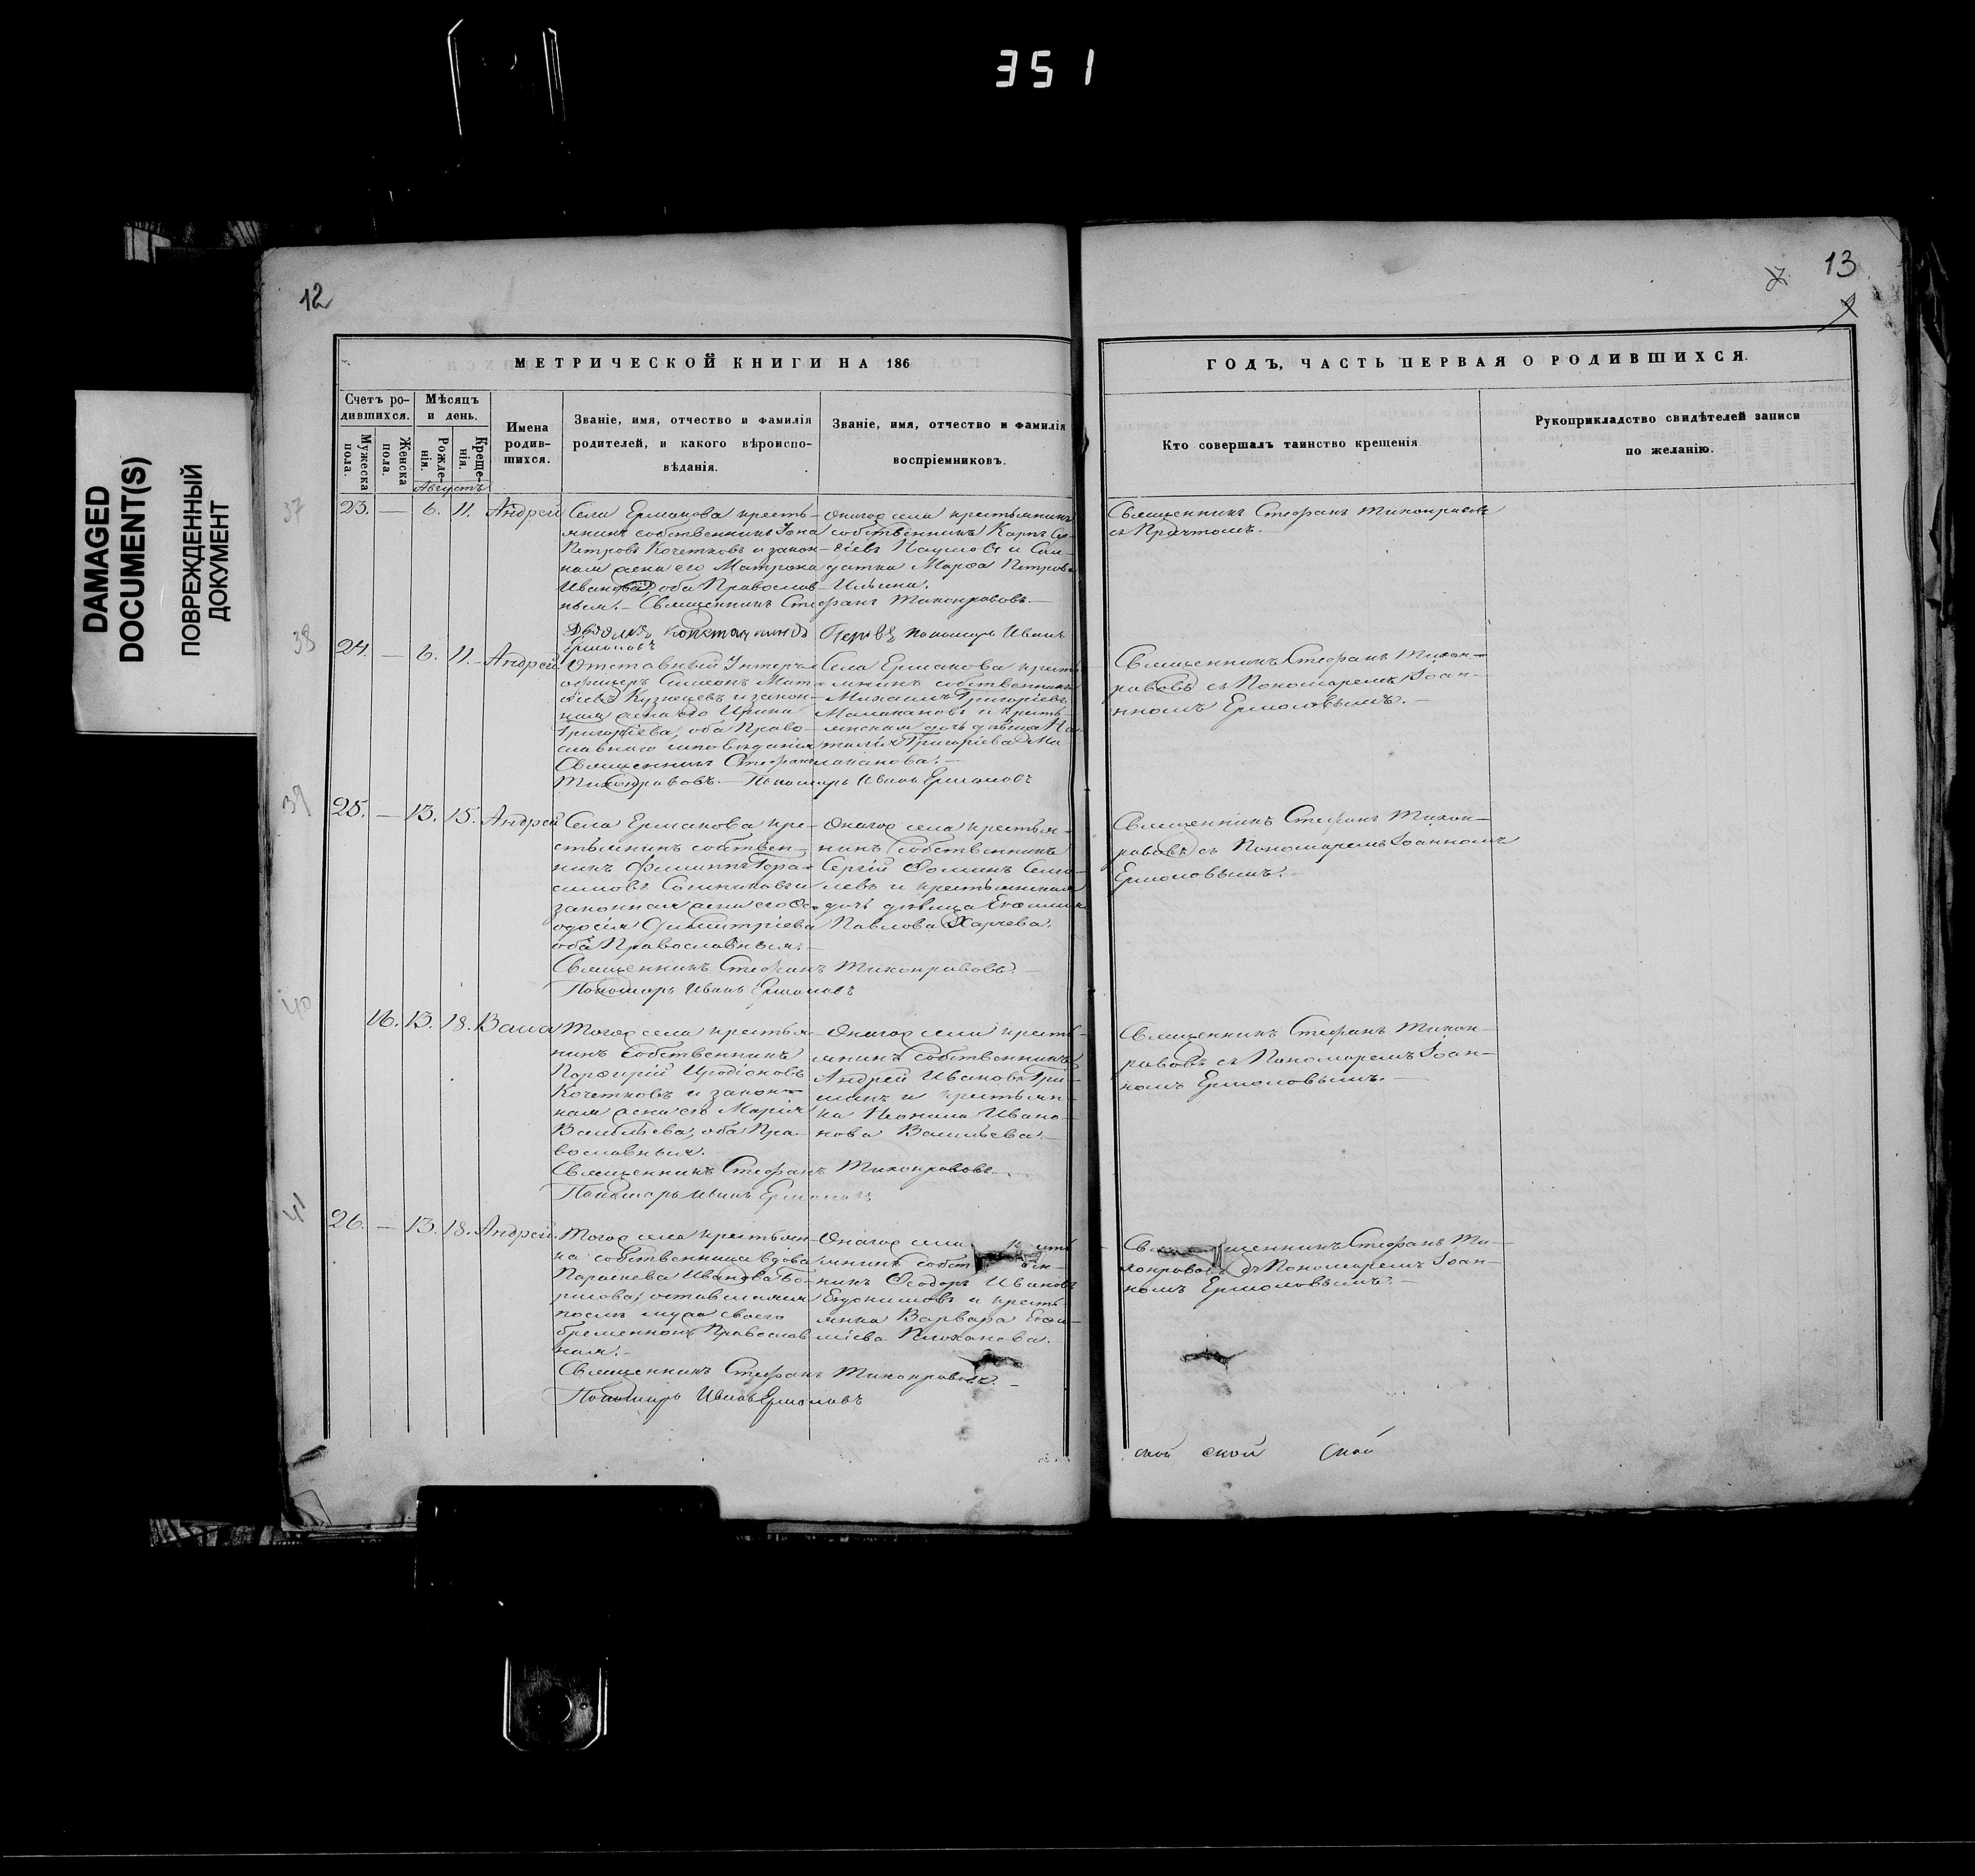 351
DAMAGED
DOCUMENT(S)
ПОВРЕЖДЕННЫЙ
ДОКУМЕНТ
12
МЕТРИЧЕСКОЙ КНИГИ НА 186
Счетъ ро-
дившихся.
Мужеска
пола.
Женска
пола.
Мѣсяцъ
и день.
Рожде-
нія.
Креще-
нія.
Августъ
Имена
родив-
шихся.
Званіе, имя, отчество и фамилія
родителей, и какого вѣроиспо-
вѣданія.
Званіе, имя, отчество и фамилія
воспріемниковъ.
37
23. — 6. 11. Андрей
Села Ермакова кресть-
янинъ собственникъ Іона
Петровъ Кочетковъ и закон-
ная жена его Матрона
Иванова, оба Православ-
ныя. — Священникъ Стефанъ Тихонравовъ. —
Онагож села крестьянинъ
собственникъ Карпъ
Наумовъ и
Марѳа Петрова
Ильина.
Константинъ Пономарь Иванъ
Ермоловъ
38
24. — 6. 11. Андрей
Отставный Унтеръ-
офицеръ Симеонъ Мат-
ѳіевъ Кузнецовъ и закон-
ная жена его Ирина
Григоріева, оба Право-
славнаго исповѣданія
Священникъ Стефанъ
Тихонравовъ. — Пономарь Иванъ Ермоловъ
Села Ермакова кресть-
янинъ собственникъ
Михаилъ Григоріевъ
и кресть-
янская дочь дѣвица
Григоріева
39
25. — 13. 15. Андрей
Села Ермакова кре-
стьянинъ собствен-
никъ Филиппъ Гера-
симовъ и
законная жена его Ѳе-
одосія Димитріева
оба Православныя. —
Священникъ Стефанъ Тихонравовъ. —
Пономарь Иванъ Ермоловъ
Онагож села крестья-
нинъ собственникъ
Сергій Ѳоминъ
и крестьянская
дочь дѣвица
Павлова Харчева.
40
16. 13. 18. Васса
Тогож села крестья-
нинъ собственникъ
Порфирій Иродіоновъ
Кочетковъ и закон-
ная жена его Марія
Васильева, оба Пра-
вославныя. —
Священникъ Стефанъ Тихонравовъ.
Пономарь Иванъ Ермоловъ
Онагож села кресть-
янинъ собственникъ
Андрей Ивановъ Гри-
шинъ и крестьян-
ка Неонила Ивано-
нова Васильева. —
41
26. — 13. 18. Андрей.
Тогож села крестьян-
ка собственница вдова
Параскева Иванова
оставшаяся
послѣ мужа своего
беременною Православ-
ная. —
Священникъ Стефанъ Тихонравовъ. —
Пономарь Иванъ Ермоловъ
Онагож села
янинъ собст
никъ Ѳеодоръ Ивановъ
Евдокимовъ и кресть
янка Варвара
Плоханова.
13
ГОДЪ, ЧАСТЬ ПЕРВАЯ О РОДИВШИХСЯ.
Кто совершалъ таинство крещенія.
Рукоприкладство свидѣтелей записи
по желанію.
Священникъ Стефанъ Тихонравовъ
съ Причтомъ.
Священникъ Стефанъ Тихон-
равовъ съ Пономаремъ Іоан-
номъ Ермоловымъ. —
Священникъ Стефанъ Тихон-
равовъ съ Пономаремъ Іоанномъ
Ермоловымъ. —
Священникъ Стефанъ Тихон-
равовъ съ Пономаремъ Іоан-
номъ Ермоловымъ. —
Священникъ Стефанъ Ти-
хонравовъ съ Пономаремъ Іоан-
номъ Ермоловымъ. —
ской ской ской